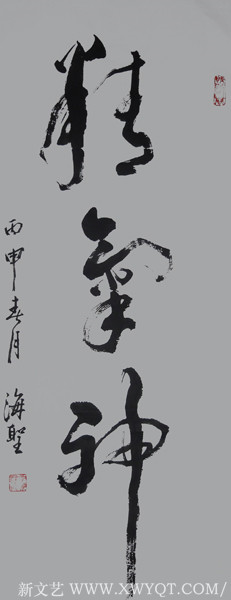 精氣神
丙申春月 海聖
新文艺 WWW.XWYQT.COM/